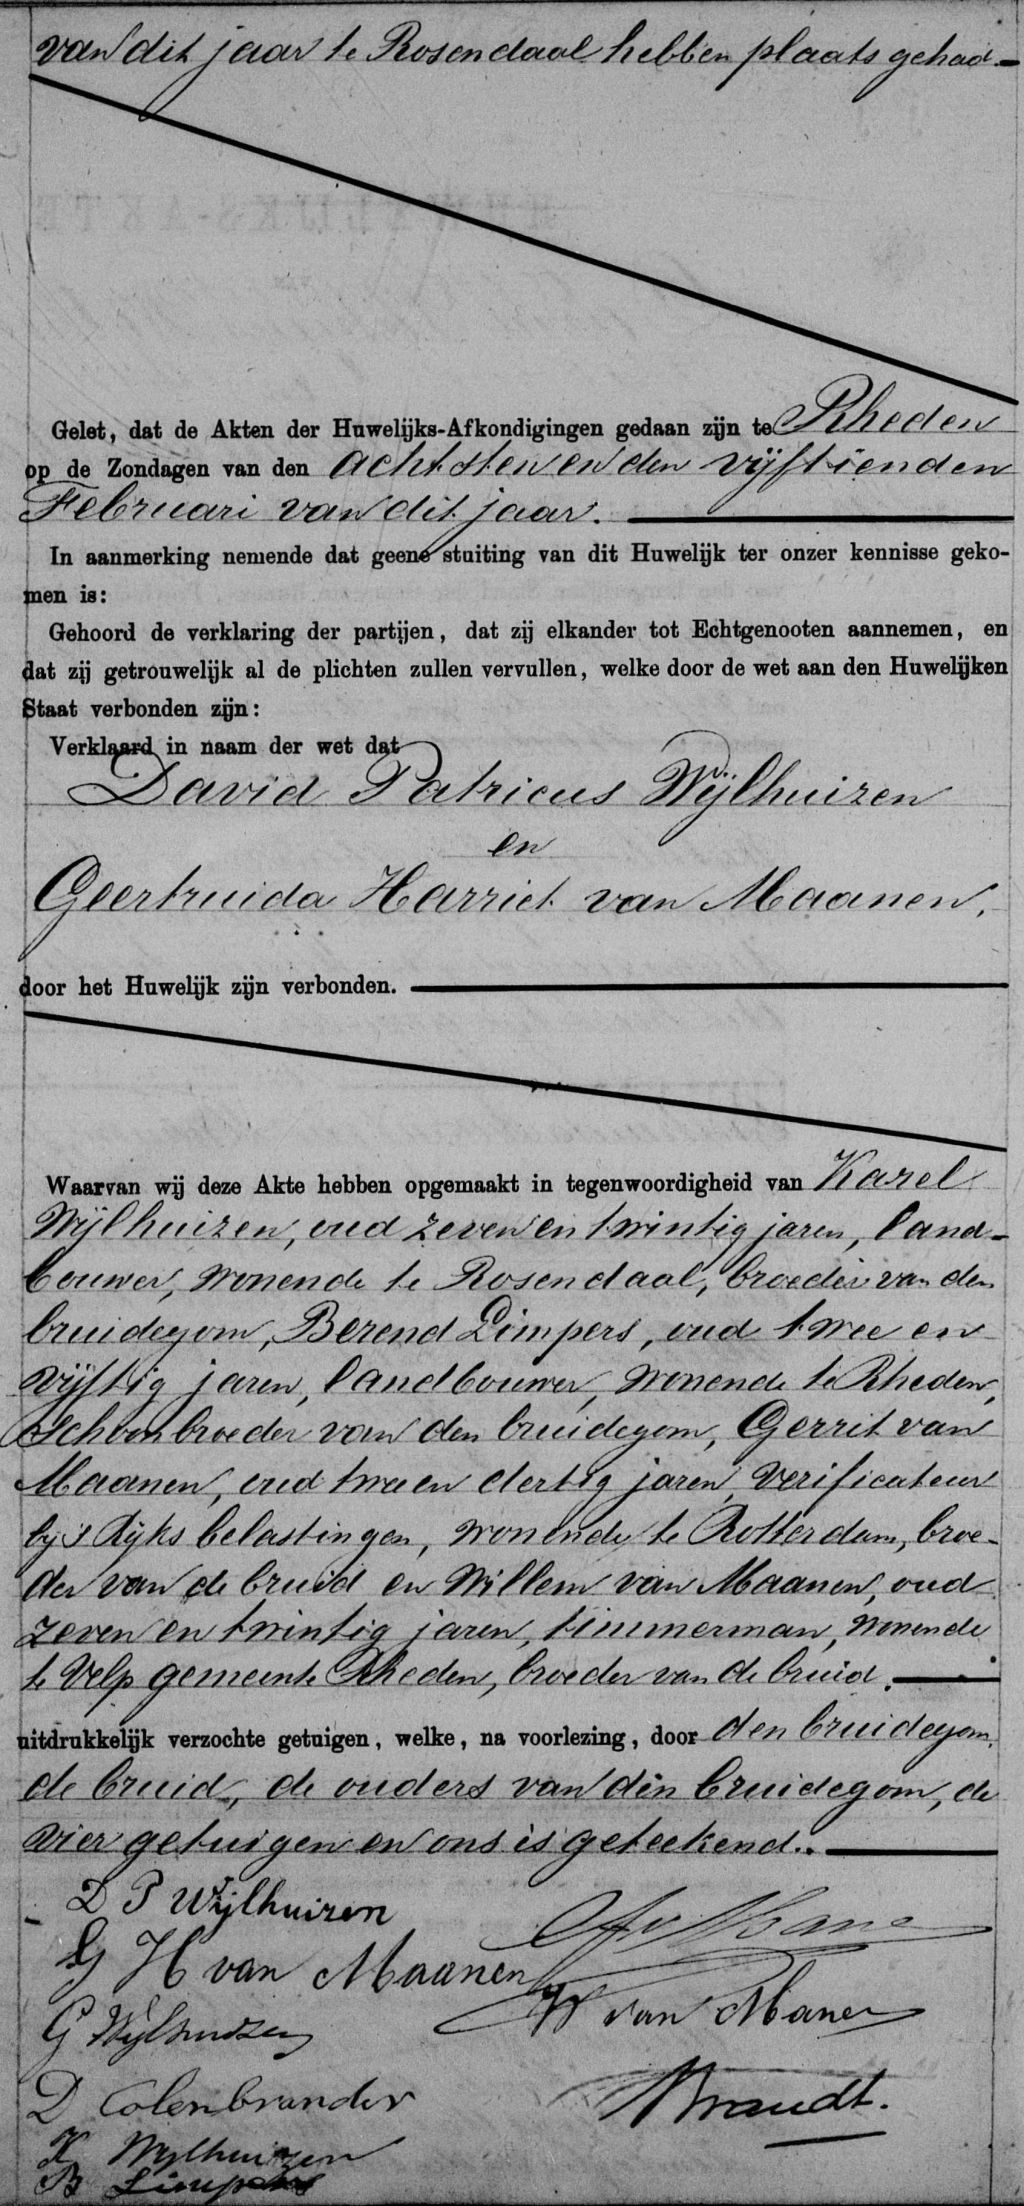 van dit jaar te Rosendaal hebben plaats gehad.
Gelet, dat de Akten der Huwelijks-Afkondigingen gedaan zijn te Rheden
op de Zondagen van den achtsten en den vijftienden
Februari van dit jaar.
In aanmerking nemende dat geene stuiting van dit Huwelijk ter onzer kennisse geko-
men is:
Gehoord de verklaring der partijen, dat zij elkander tot Echtgenooten aannemen, en
dat zij getrouwelijk al de plichten zullen vervullen, welke door de wet aan den Huwelijken
Staat verbonden zijn:
Verklaard in naam der wet dat
David Patricus Wijlhuizen
en
Geertruida Harriet van Maanen,
door het Huwelijk zijn verbonden.
Waarvan wij deze Akte hebben opgemaakt in tegenwoordigheid van Karel
Wijlhuizen, oud zeven en twintig jaren, land-
bouwer, wonende te Rosendaal, broeder van den
bruidegom, Berend Limpers, oud twee en
vijftig jaren, landbouwer, wonende te Rheden,
schoonbroeder van den bruidegom, Gerrit van
Maanen, oud twee en dertig jaren, verificateur
bij 's Rijks belastingen, wonende te Rotterdam, broe-
der van de bruid en Willem van Maanen, oud
zeven en twintig jaren, timmerman, wonende
te Velp gemeente Rheden, broeder van de bruid.
uitdrukkelijk verzochte getuigen, welke, na voorlezing, door den bruidegom,
de bruid, de ouders van den bruidegom, de
vier getuigen en ons is geteekend.
D P Wijlhuizen
G H van Maanen
G Wijlhuizen
W van Manen
D Colenbrander
Brandt.
K Wijlhuizen
B Limpers